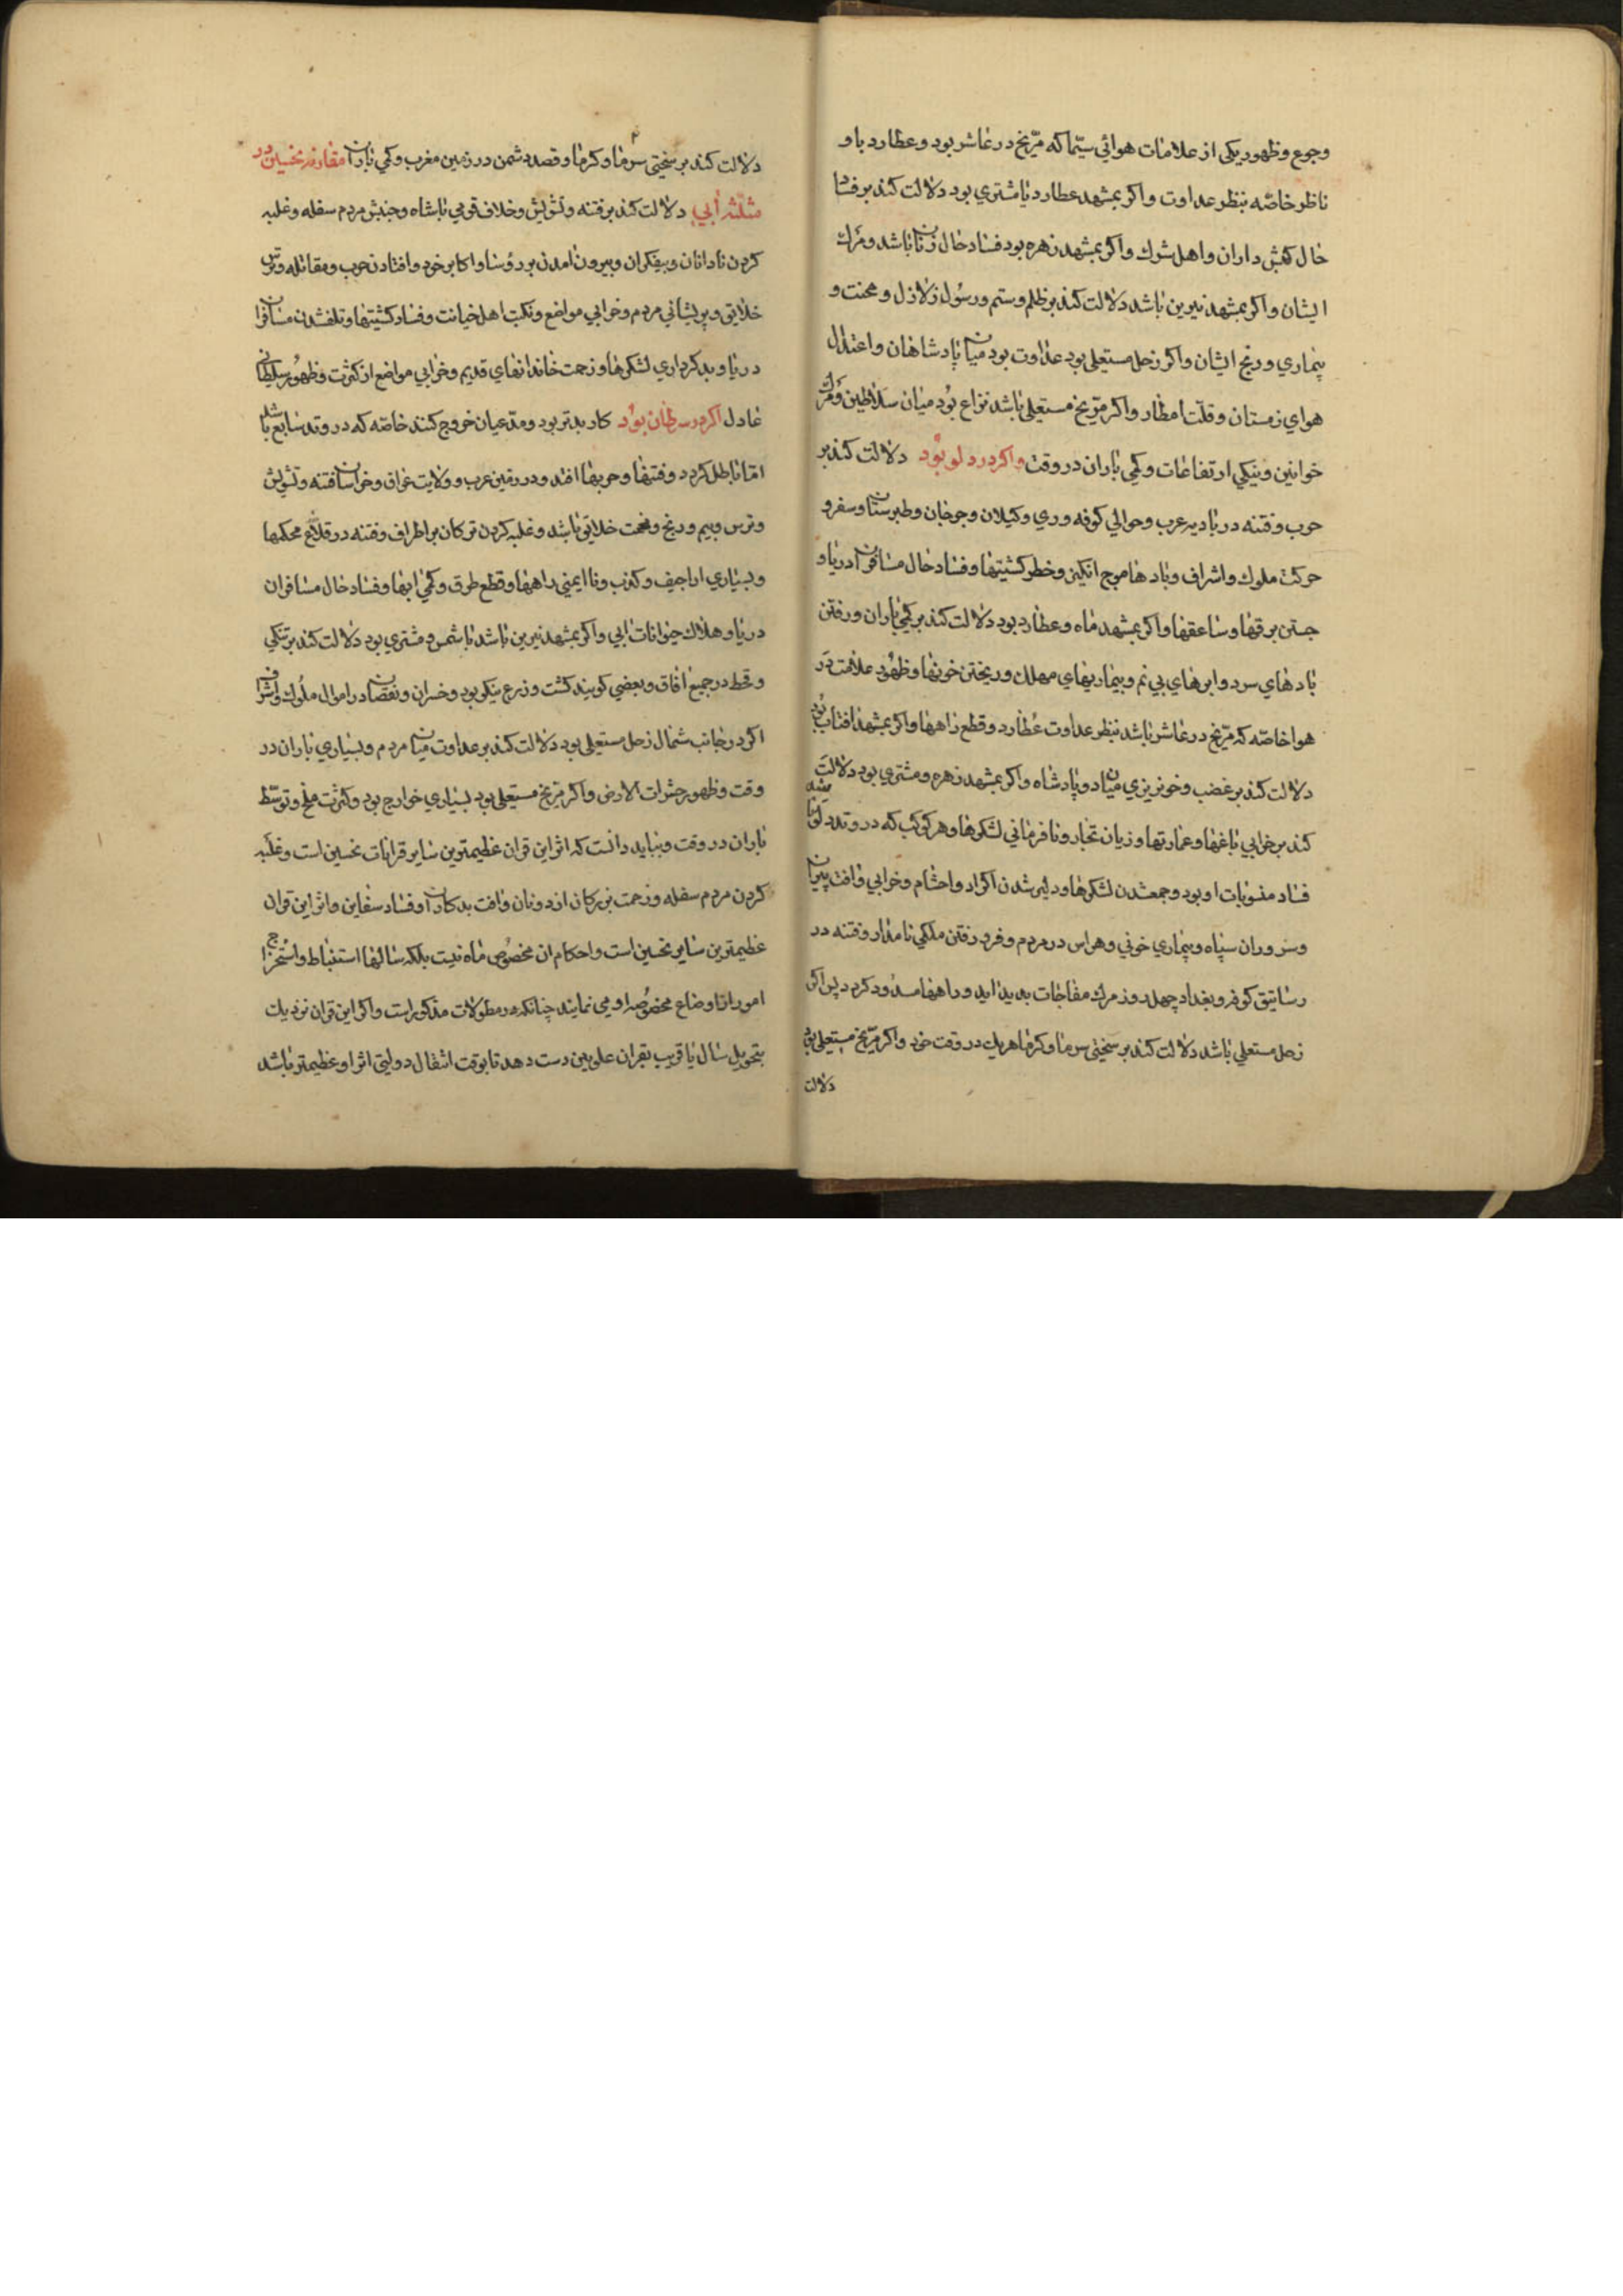 وجوع وظهور یکی از علامات هوائی سیّما که مرّیخ در عاشر بود وعطارد با و
ناظر خاصّه بنظر عداوت واکر بمشهد عطارد یا مشتری بود دلالت کند بر فساد
حال کفش داران واهل شرك واکر بمشهد زهره بود فساد حال زنان باشد ومرك
ایشان واکر بمشهد نیرین باشد دلالت کند بر ظلم وستم ورسول زلازل ومحنت و
بیماری ورنج ایشان واکر زحل مستعلی بود عداوت بود میان پادشاهان واعتدال
هوای زمستان وقلّت امطار واکر مرّیخ مستعلی باشد نزاع بود میان سلاطین ومرك
خوانین ونیکی ارتفاعات وکمی باران در وقت واکر در دلو بود دلالت کند بر
حرب وفتنه در بادیه عرب وحوالی کوفه وری وکیلان وجرجان وطبرستان وسفر و
حرکت ملوك واشراف وبادها موج انکیز وخطر کشتیها وفساد حال مسافران دریا و
جستن برقها وساعقها واکر بمشهد ماه وعطارد بود دلالت کند بر کمی باران ورفتن
بادهای سرد وابرهای بی نم وبیماریهای مهلك وریختن خونها وظهور علامت در
هوا خاصّه که مرّیخ در عاشر باشد بنظر عداوت عطارد وقطع راهها واکر بمشهد افتاب بود
دلالت کند بر غضب وخونریزی میان دو پادشاه واکر بمشهد زهره ومشتری بود دلالت
کند بر خرابی باغها وعمارتها وزیان تجار ونافرمانی لشکرها وهر کوکب که در وتد دلو باشد
فساد منسوبات او بود وجمعشدن لشکرها ودلیر شدن اکراد واحشام وخرابی وافت پیران
وسروران سپاه وبیماری خونی وهراس در مردم وفرو رفتن ملکی نامدار وفتنه در
رساتیق کوفه وبغداد چهل روز مرك مفاجات پدید اید وراهها مسدود کردد پس اکر
زحل مستعلی باشد دلالت کند بر سختی سرما وکرما هریك در وقت خود واکر مرّیخ مستعلی بود
دلالت
دلالت کند بر سختی سرما وکرما وقصد دشمن در زمین مغرب وکمی باران مقارنه نحسین در
مثلّثه ابی دلالت کند بر فتنه وتشویش وخلاف قومی با شاه وجنبش مردم سفله وغلبه
کردن نادانان وبیفکران وبیرون امدن بر رؤسا واکابر خود وافتادن حرب ومقاتله وترس
خلایق وپریشانی مردم وخرابی مواضع ونکبت اهل خیانت وفساد کشتیها وتلفشدن مسافران
دریا وبدکرداری لشکرها وزحمت خاندانهای قدیم وخرابی مواضع از کثرت وظهور سلطانی
عادل اکر در سرطان بود کار بدتر بود ومدّعیان خروج کنند خاصّه که در وتد سابع باشد
امّا باطل کردد وفتنها وحربها افتد ودر زمین عرب وولایت عراق وخراسان فتنه وتشویش
وترس وبیم ورنج وزحمت خلایق باشد وغلبه کردن ترکان بر اطراف وفتنه در قلاع محکمها
وبسیاری اراجیف وکذب وناایمنی راهها وقطع طرق وکمی ابها وفساد حال مسافران
دریا وهلاك حیوانات ابی واکر بمشهد نیرین باشد با شمس ومشتری بود دلالت کند بر تنکی
وقحط در جمیع افاق وبعضی کویند کشت وزرع نیکو بود وخسران ونقصان در اموال ملوك واشراف
اکر در جانب شمال زحل مستعلی بود دلالت کند بر عداوت میان مردم وبسیاری باران در
وقت وظهور حشرات الارض واکر مرّیخ مستعلی بود بسیاری خوارج بود وکثرت ملخ وتوسّط
باران در وقت وبباید دانست که اثر این قران عظیمترین سایر قرانات نحسین است وغلبه
کردن مردم سفله وزحمت بزرکان از دونان وافت بدکاران وفساد سفاین واثر این قران
عظیمترین سایر نحسین است واحکام ان مخصوص ماه نیست بلکه سالها استنباط واستخراج
امور از اوضاع مخصوصه او می نمایند چنانکه در مطولات مذکور است واکر این قران نزدیك
بتحویل سال یا قریب بقران علویین دست دهد تا بوقت انتقال دولتی اثر او عظیمتر باشد